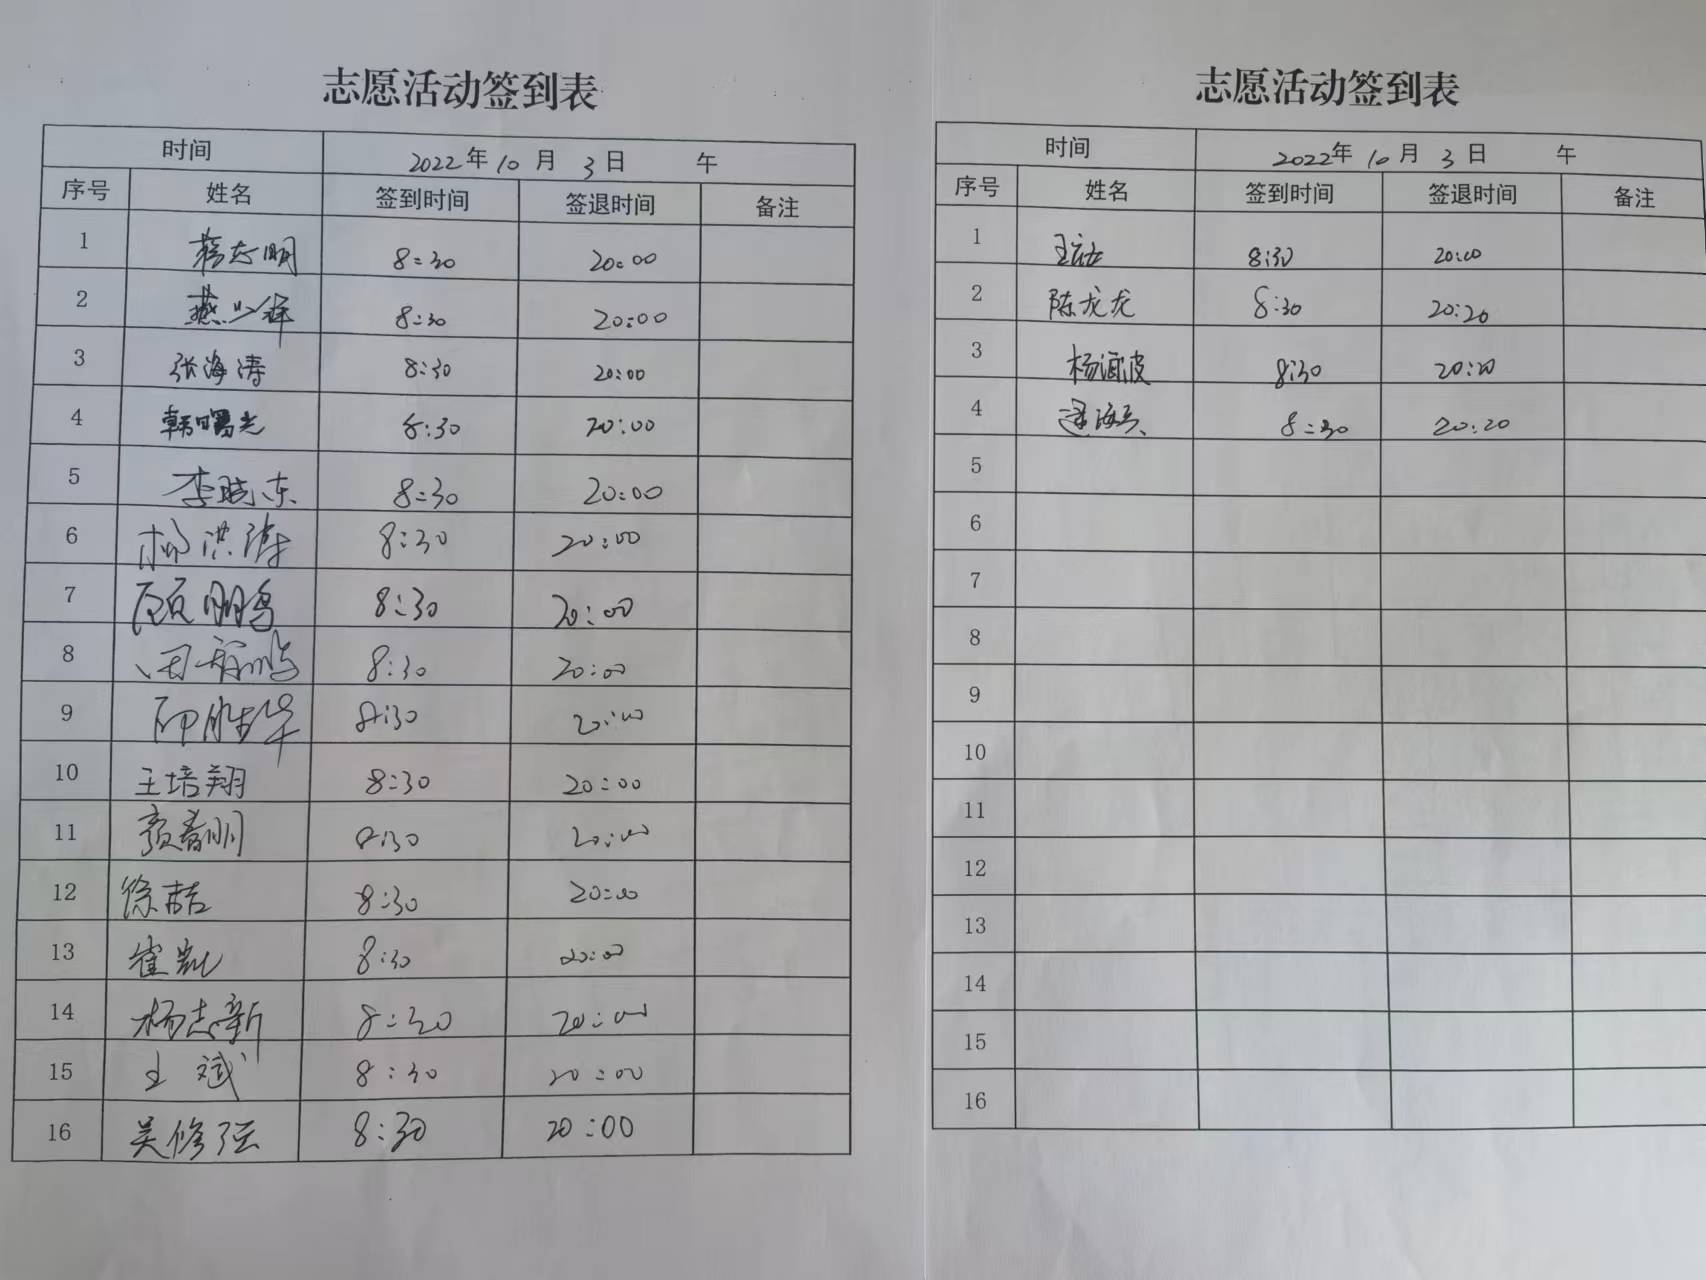 志愿活动签到表
时间 2022年10月3日 午
序号 姓名 签到时间 签退时间 备注
1 杨志明 8:30 20:00
2 燕 8:30 20:00
3 张海涛 8:30 20:00
4 韩曙光 8:30 20:00
5 李晓东 8:30 20:00
6 杨洪涛 8:30 20:00
7 顾鹏 8:30 20:00
8 8:30 20:00
9 8:30 20:00
10 王培翔 8:30 20:00
11 8:30 20:00
12 徐喆 8:30 20:00
13 崔凯 8:30 20:00
14 杨志新 8:30 20:00
15 王斌 8:30 20:00
16 吴修强 8:30 20:00
志愿活动签到表
时间 2022年10月3日 午
序号 姓名 签到时间 签退时间 备注
1 王 8:30 20:00
2 陈龙龙 8:30 20:20
3 杨波 8:30 20:20
4 8:30 20:20
5
6
7
8
9
10
11
12
13
14
15
16